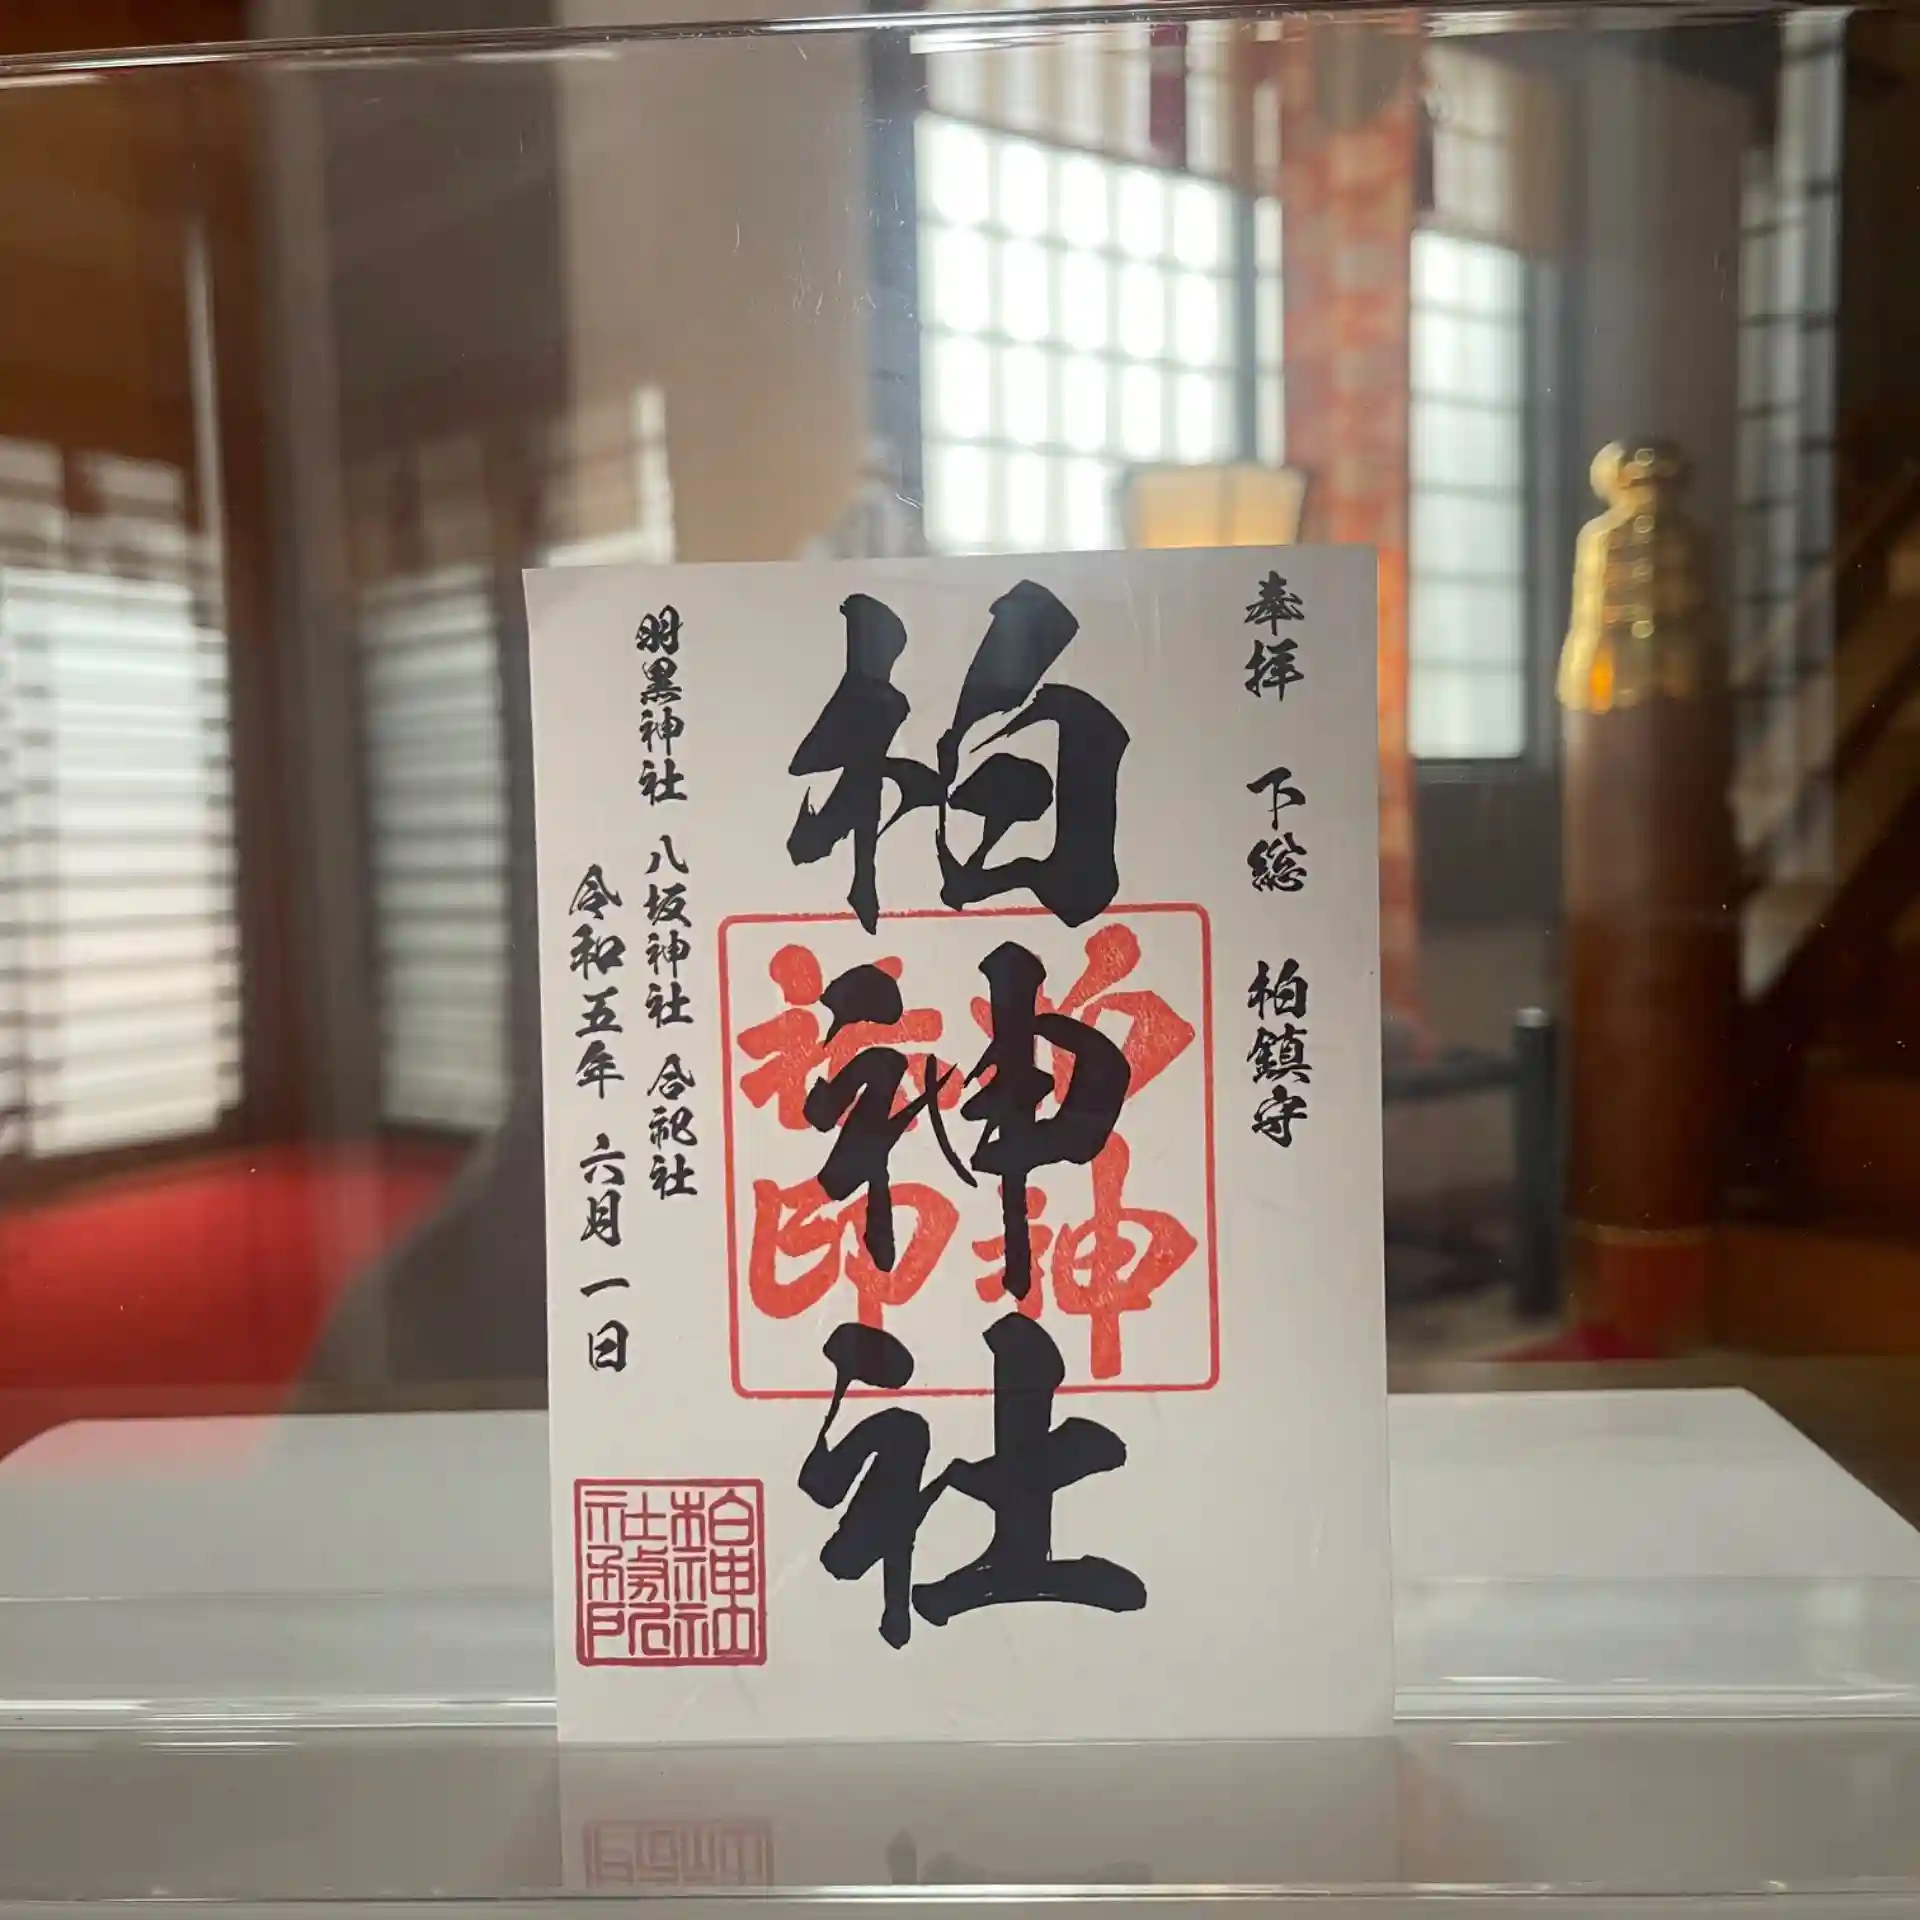 奉拝 下総 柏鎮守
柏神社
柏神
社印
羽黒神社 八坂神社 合祀社
令和五年 六月一日
柏神社
社務